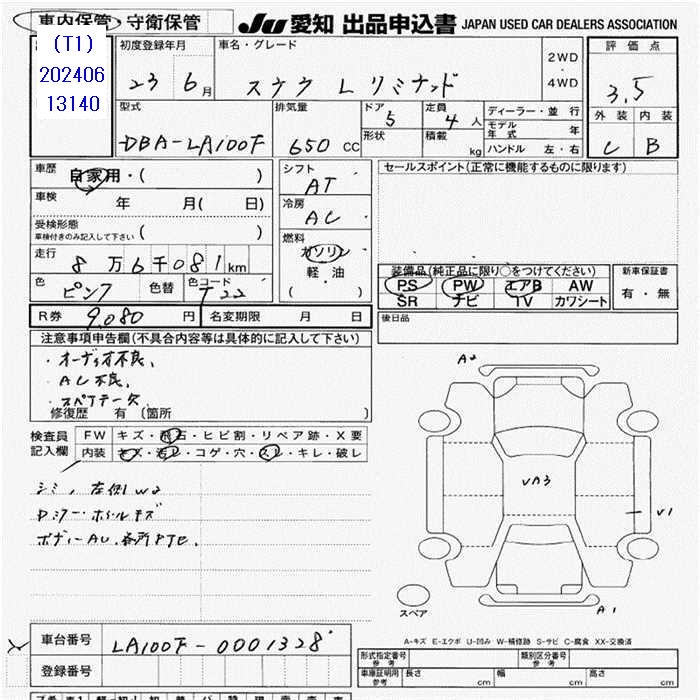 車内保管・守衛保管 JU 愛知 出品申込書 JAPAN USED CAR DEALERS ASSOCIATION
(T1)
202406
13140
初度登録年月 車名・グレード 2WD ・ 4WD 評価点
23 6月 3.5
型式 排気量 ドア 定員 ディーラー・並行 外装 内装
DBA-LA100F 650 CC 5 4人 モデル年式 年 C B
形状 積載 kg ハンドル 左・右
車歴 自家用・( ) シフト AT セールスポイント(正常に機能するものに限ります)
車検 年 月( 日) 冷房 AC
受検形態
車検付きのみ記入して下さい ( ) 燃料 ガソリン
走行 8万6千081km 軽油
色 ピンク 色替 色コード T22 ( ・ )
装備品(純正品に限り○をつけてください) 新車保証書
PS PW エアB AW 有・無
SR ナビ TV カワシート
R券 9,080円 名変期限 月 日 後日品
注意事項申告欄(不具合内容等は具体的に記入して下さい)
・オーディオ不良、
・AC不良、
・スペアキー欠
修復歴 有 〔箇所 〕
検査員記入欄 FW キズ・飛石・ヒビ割・リペア跡・X要
内装 キズ・汚レ・コゲ・穴・スレ・キレ・破レ
A2
VA3
V1
A1
シミ、左側W2
Dミラー・ホイールキズ
ボディーAU、各所
スペア
A-キズ E-エクボ U-凹み W-補修跡 S-サビ C-腐食 XX-交換済
車台番号 LA100F-0001328
登録番号
形式指定番号 参考 類別区分番号 参考
車庫証明用 参考 長さ cm 幅 cm 高さ cm